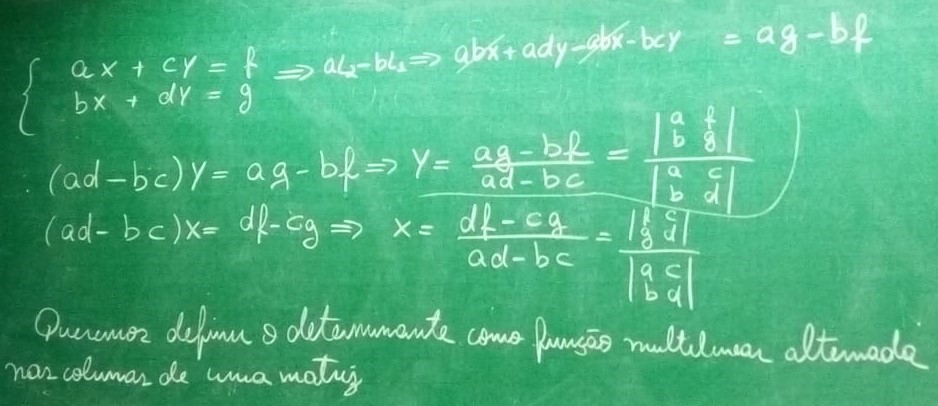 ax + cy = f ⇒ aL₂-bL₁ ⇒ abx + ady - abx - bcy = ag - bf
bx + dy = g
(ad-bc)y = ag - bf ⇒ y = ag-bf / ad-bc = |a f| / |a c|
|b g| |b d|
(ad-bc)x = df-cg ⇒ x = df-cg / ad-bc = |f c| / |a c|
|g d| |b d|
Queremos definir o determinante como função multilinear alternada
nas colunas de uma matriz